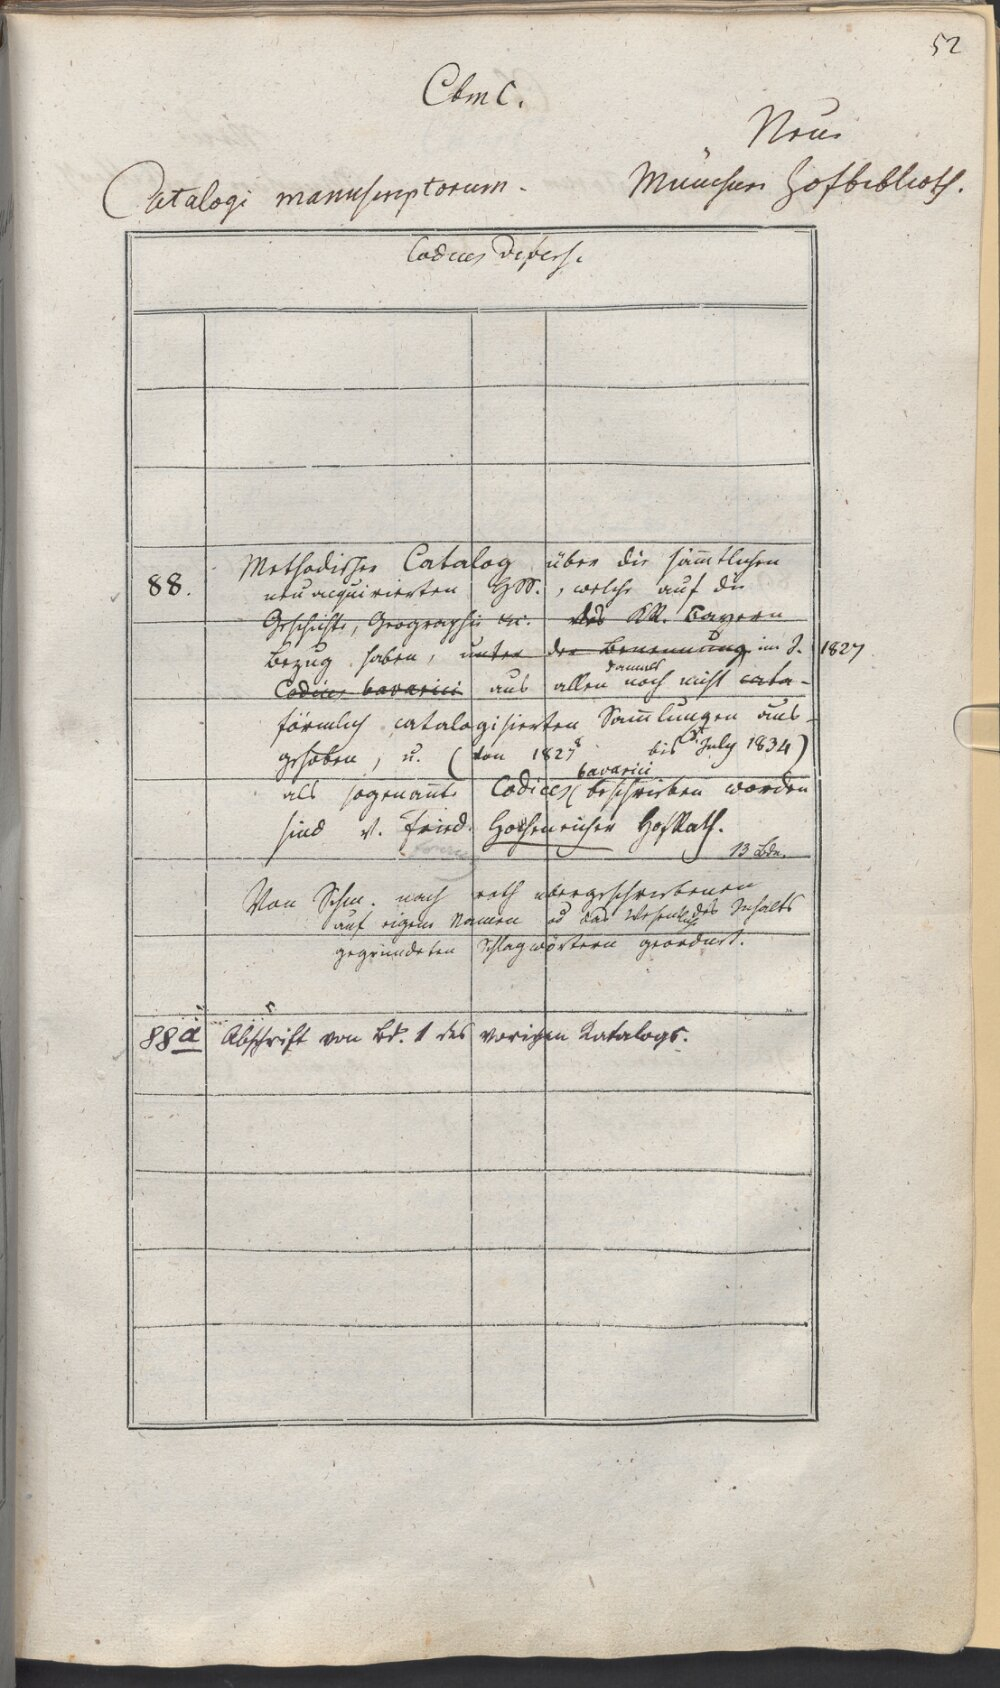 52
Cbm C.
Neue
Catalogi manuscriptorum.
Münchner Hofbiblioth.
Codices diversi.
88.
Methodischer Catalog über die sämtlichen
neu acquirierten HSS., welche auf die
Geschichte, Geographie etc. des KR. Bayern
Bezug haben, unter der Benennung im J. 1827
damals
Codices bavarici aus allen noch nicht cata-
förmlich catalogisierten Sammlungen aus-
gehoben, u. (von 1827 bis July 1834)
bavarici
als sogenannte Codices beschrieben worden
sind v. Fried. Hoheneicher HofRath.
13 Bde.
Von Schm. nach roth übergeschriebenen
auf eigene Namen od das Wesentliche des Inhalts
gegründeten Schlagwörtern geordnet.
88 a
Abschrift von Bd. 1 des vorigen Katalogs.